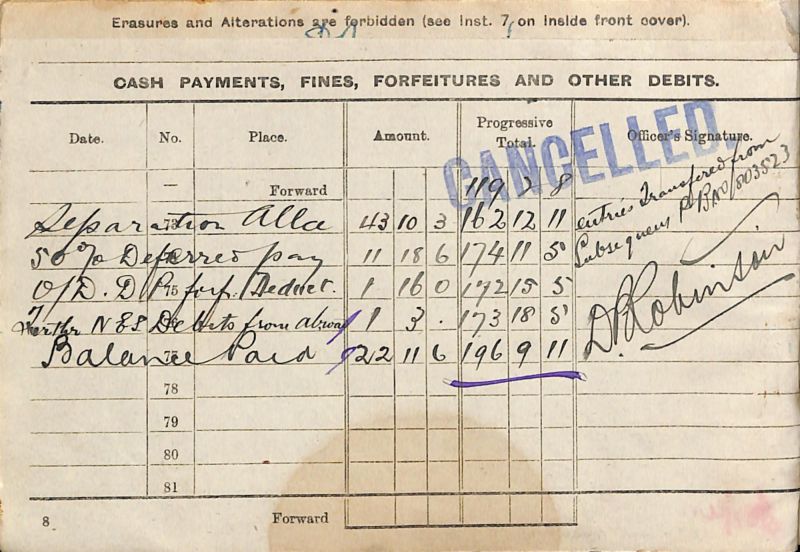 Erasures and Alterations are forbidden (see Inst. 7, on inside front cover).
CASH PAYMENTS, FINES, FORFEITURES AND OTHER DEBITS.
Date. No. Place. Amount. Progressive Total. Officer's Signature.
CANCELLED
— Forward 119 2 8
Separation Alla 43 10 3 162 12 11
entries Transfered from
Subsequent P. B No 803523
50% Deferred pay 11 18 6 174 11 5
O/D. D P 75 forf. Deduct. 1 16 0 172 15 5
Further N E S Debits from abroad 1 3 . 173 18 5
D. Robinson
Balance Paid 22 11 6 196 9 11
78
79
80
81
8 Forward